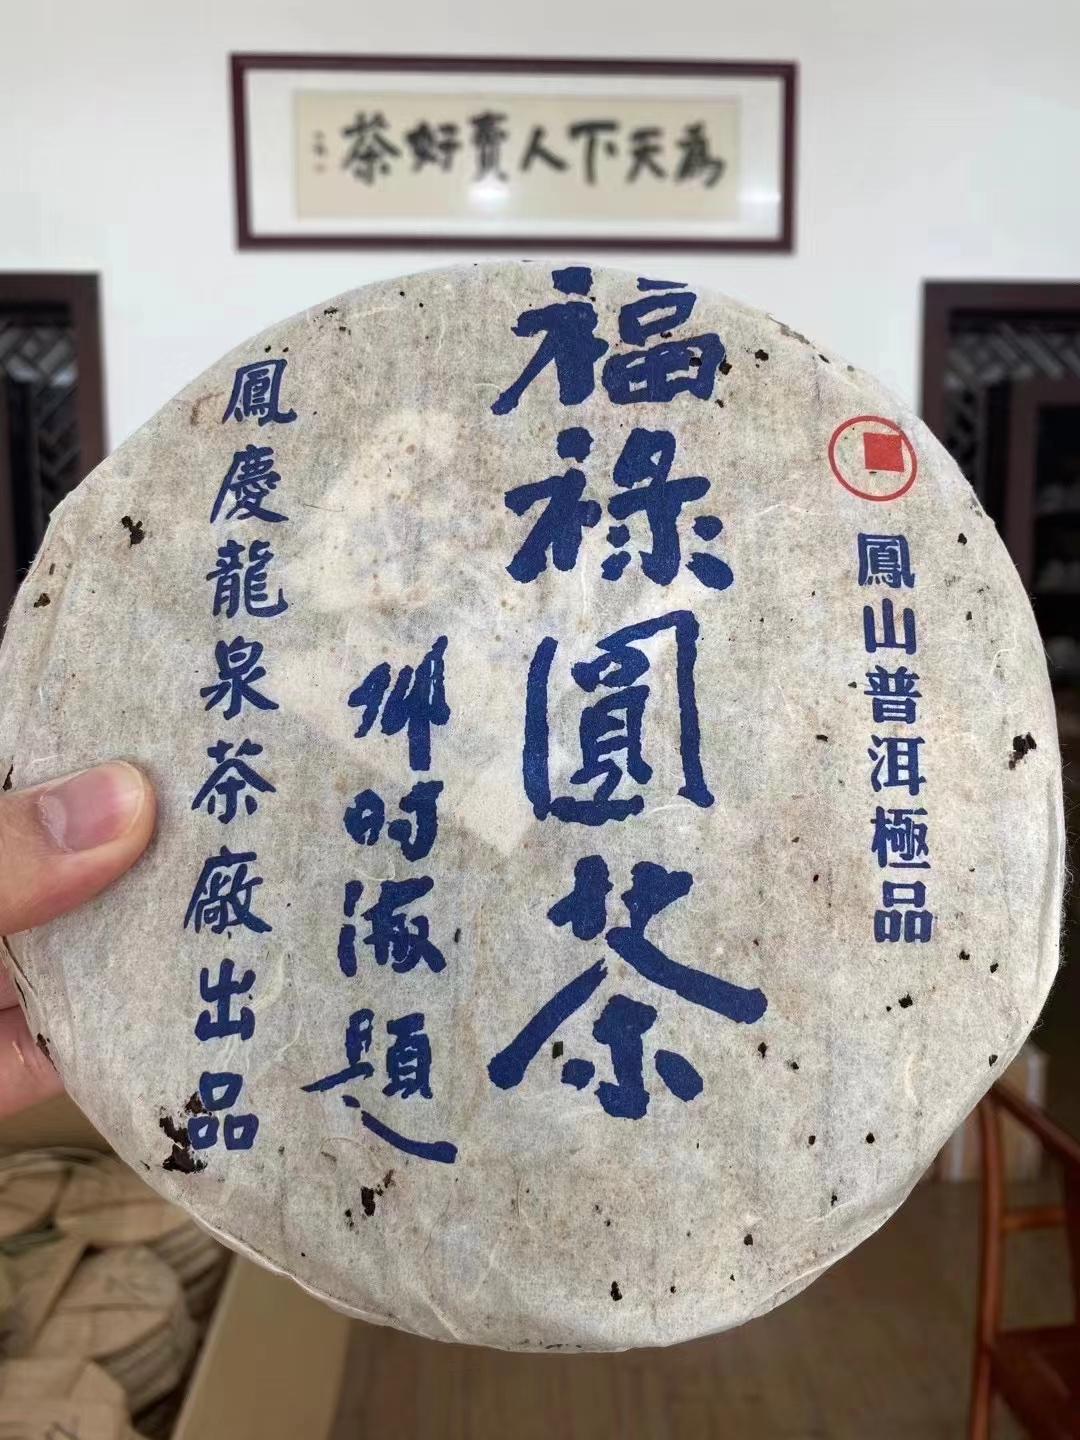 為天下人賣好茶
鳳山普洱極品
福祿圓茶
時海題
鳳慶龍泉茶廠出品